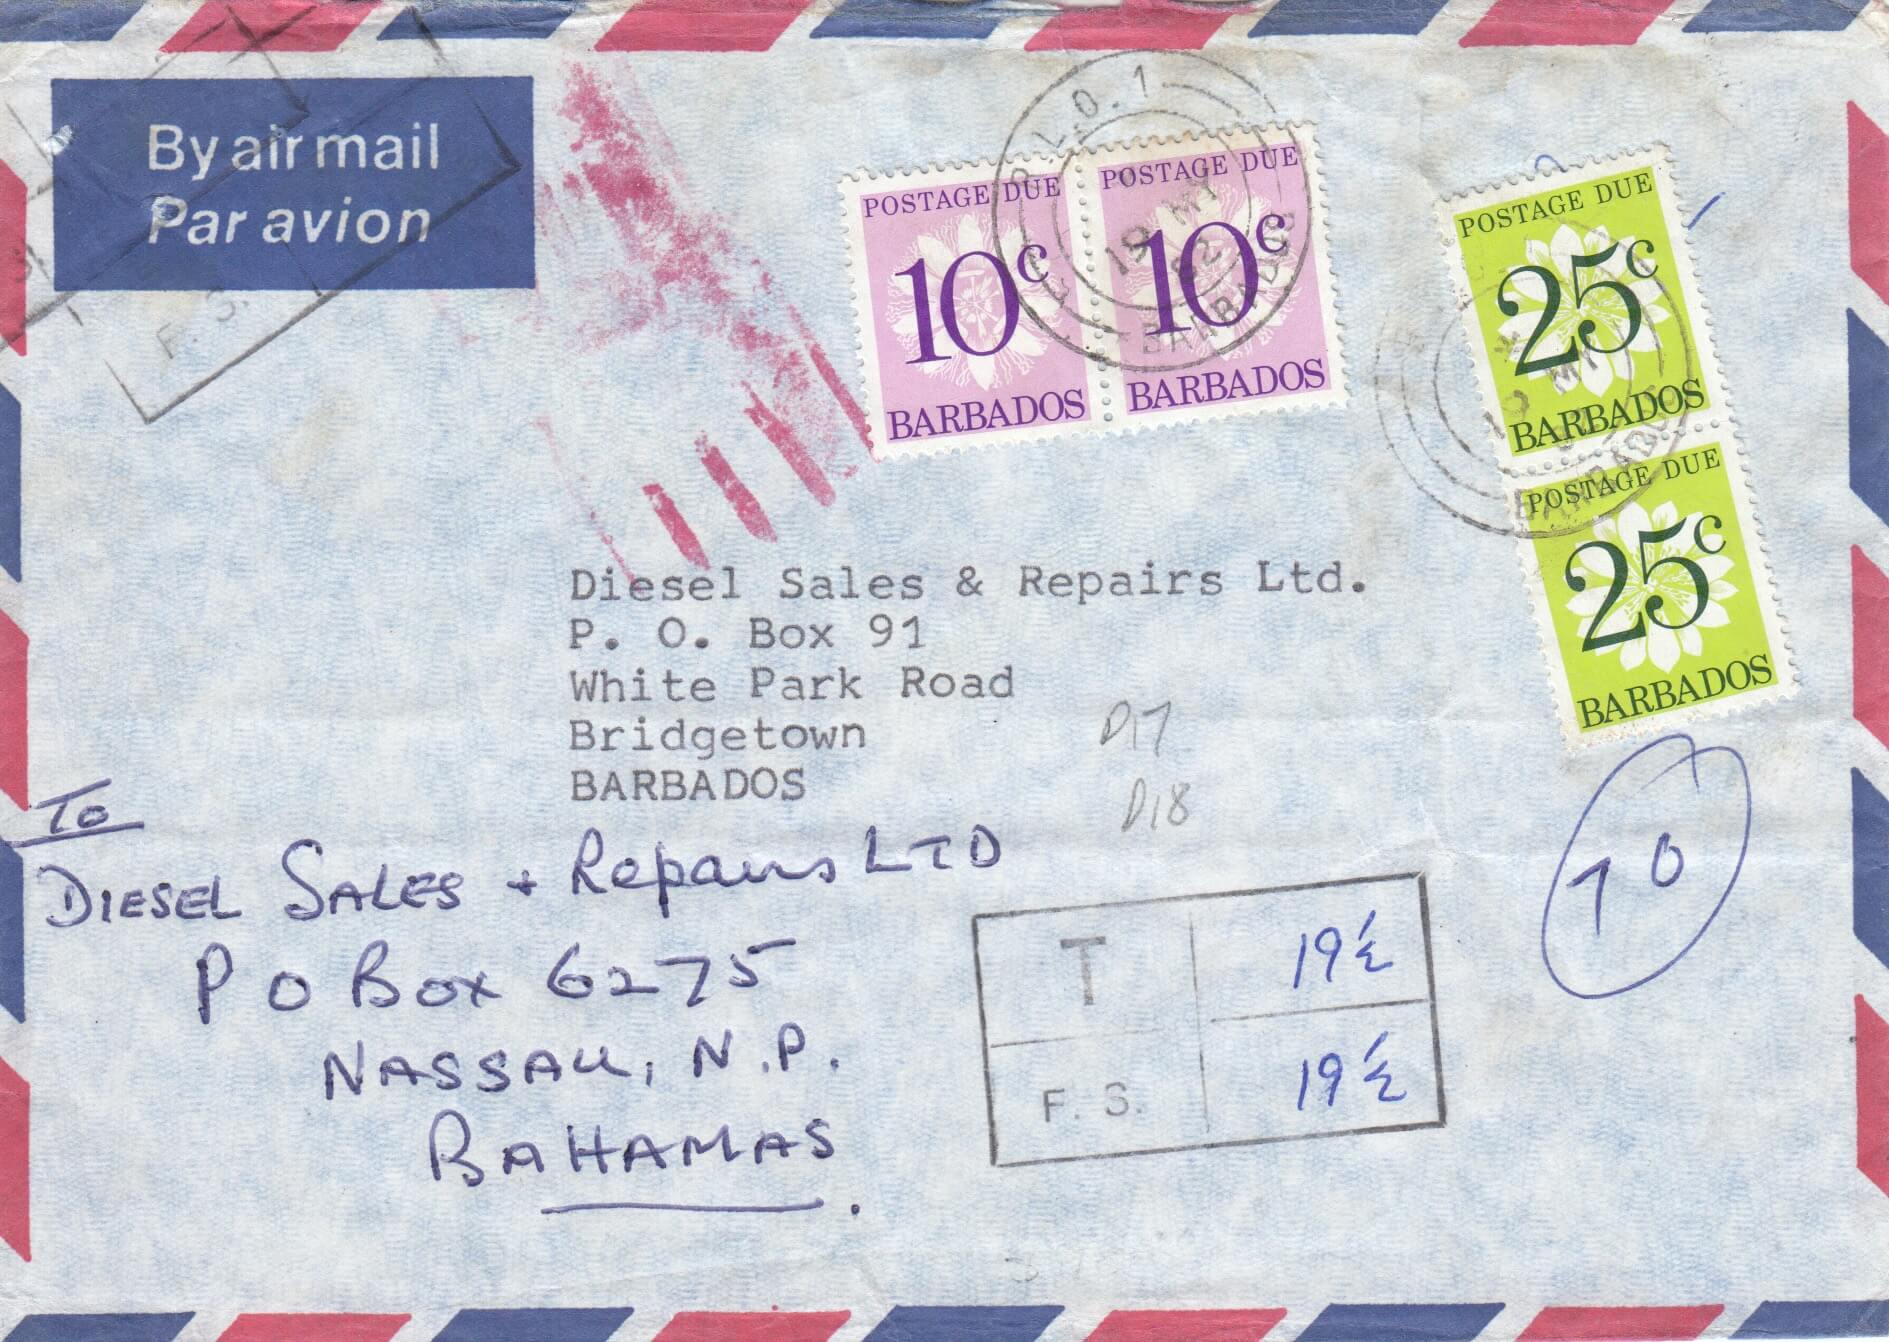 By air mail
Par avion
F. S.
POSTAGE DUE
10c
BARBADOS
POSTAGE DUE
10c
BARBADOS
19 MY
82
BARBADOS
POSTAGE DUE
25c
BARBADOS
POSTAGE DUE
25c
BARBADOS
BARBADOS
Diesel Sales & Repairs Ltd.
P. O. Box 91
White Park Road
Bridgetown
BARBADOS
D17
D18
To
DIESEL SALES + Repairs LTD
P O Box 6275
NASSAU, N.P.
BAHAMAS.
70
T 19½
F. S. 19½